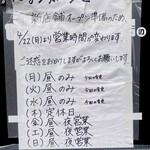 新店舗オープン準備のため、
4/22(月)より営業時間が変わります
ご迷惑をおかけしますがよろしくお願いします
(月) 昼のみ
(火) 昼のみ
(水) 昼のみ
(木) 定休日
(金) 昼・夜営業
(土) 昼・夜営業
(日) 昼・夜営業
の